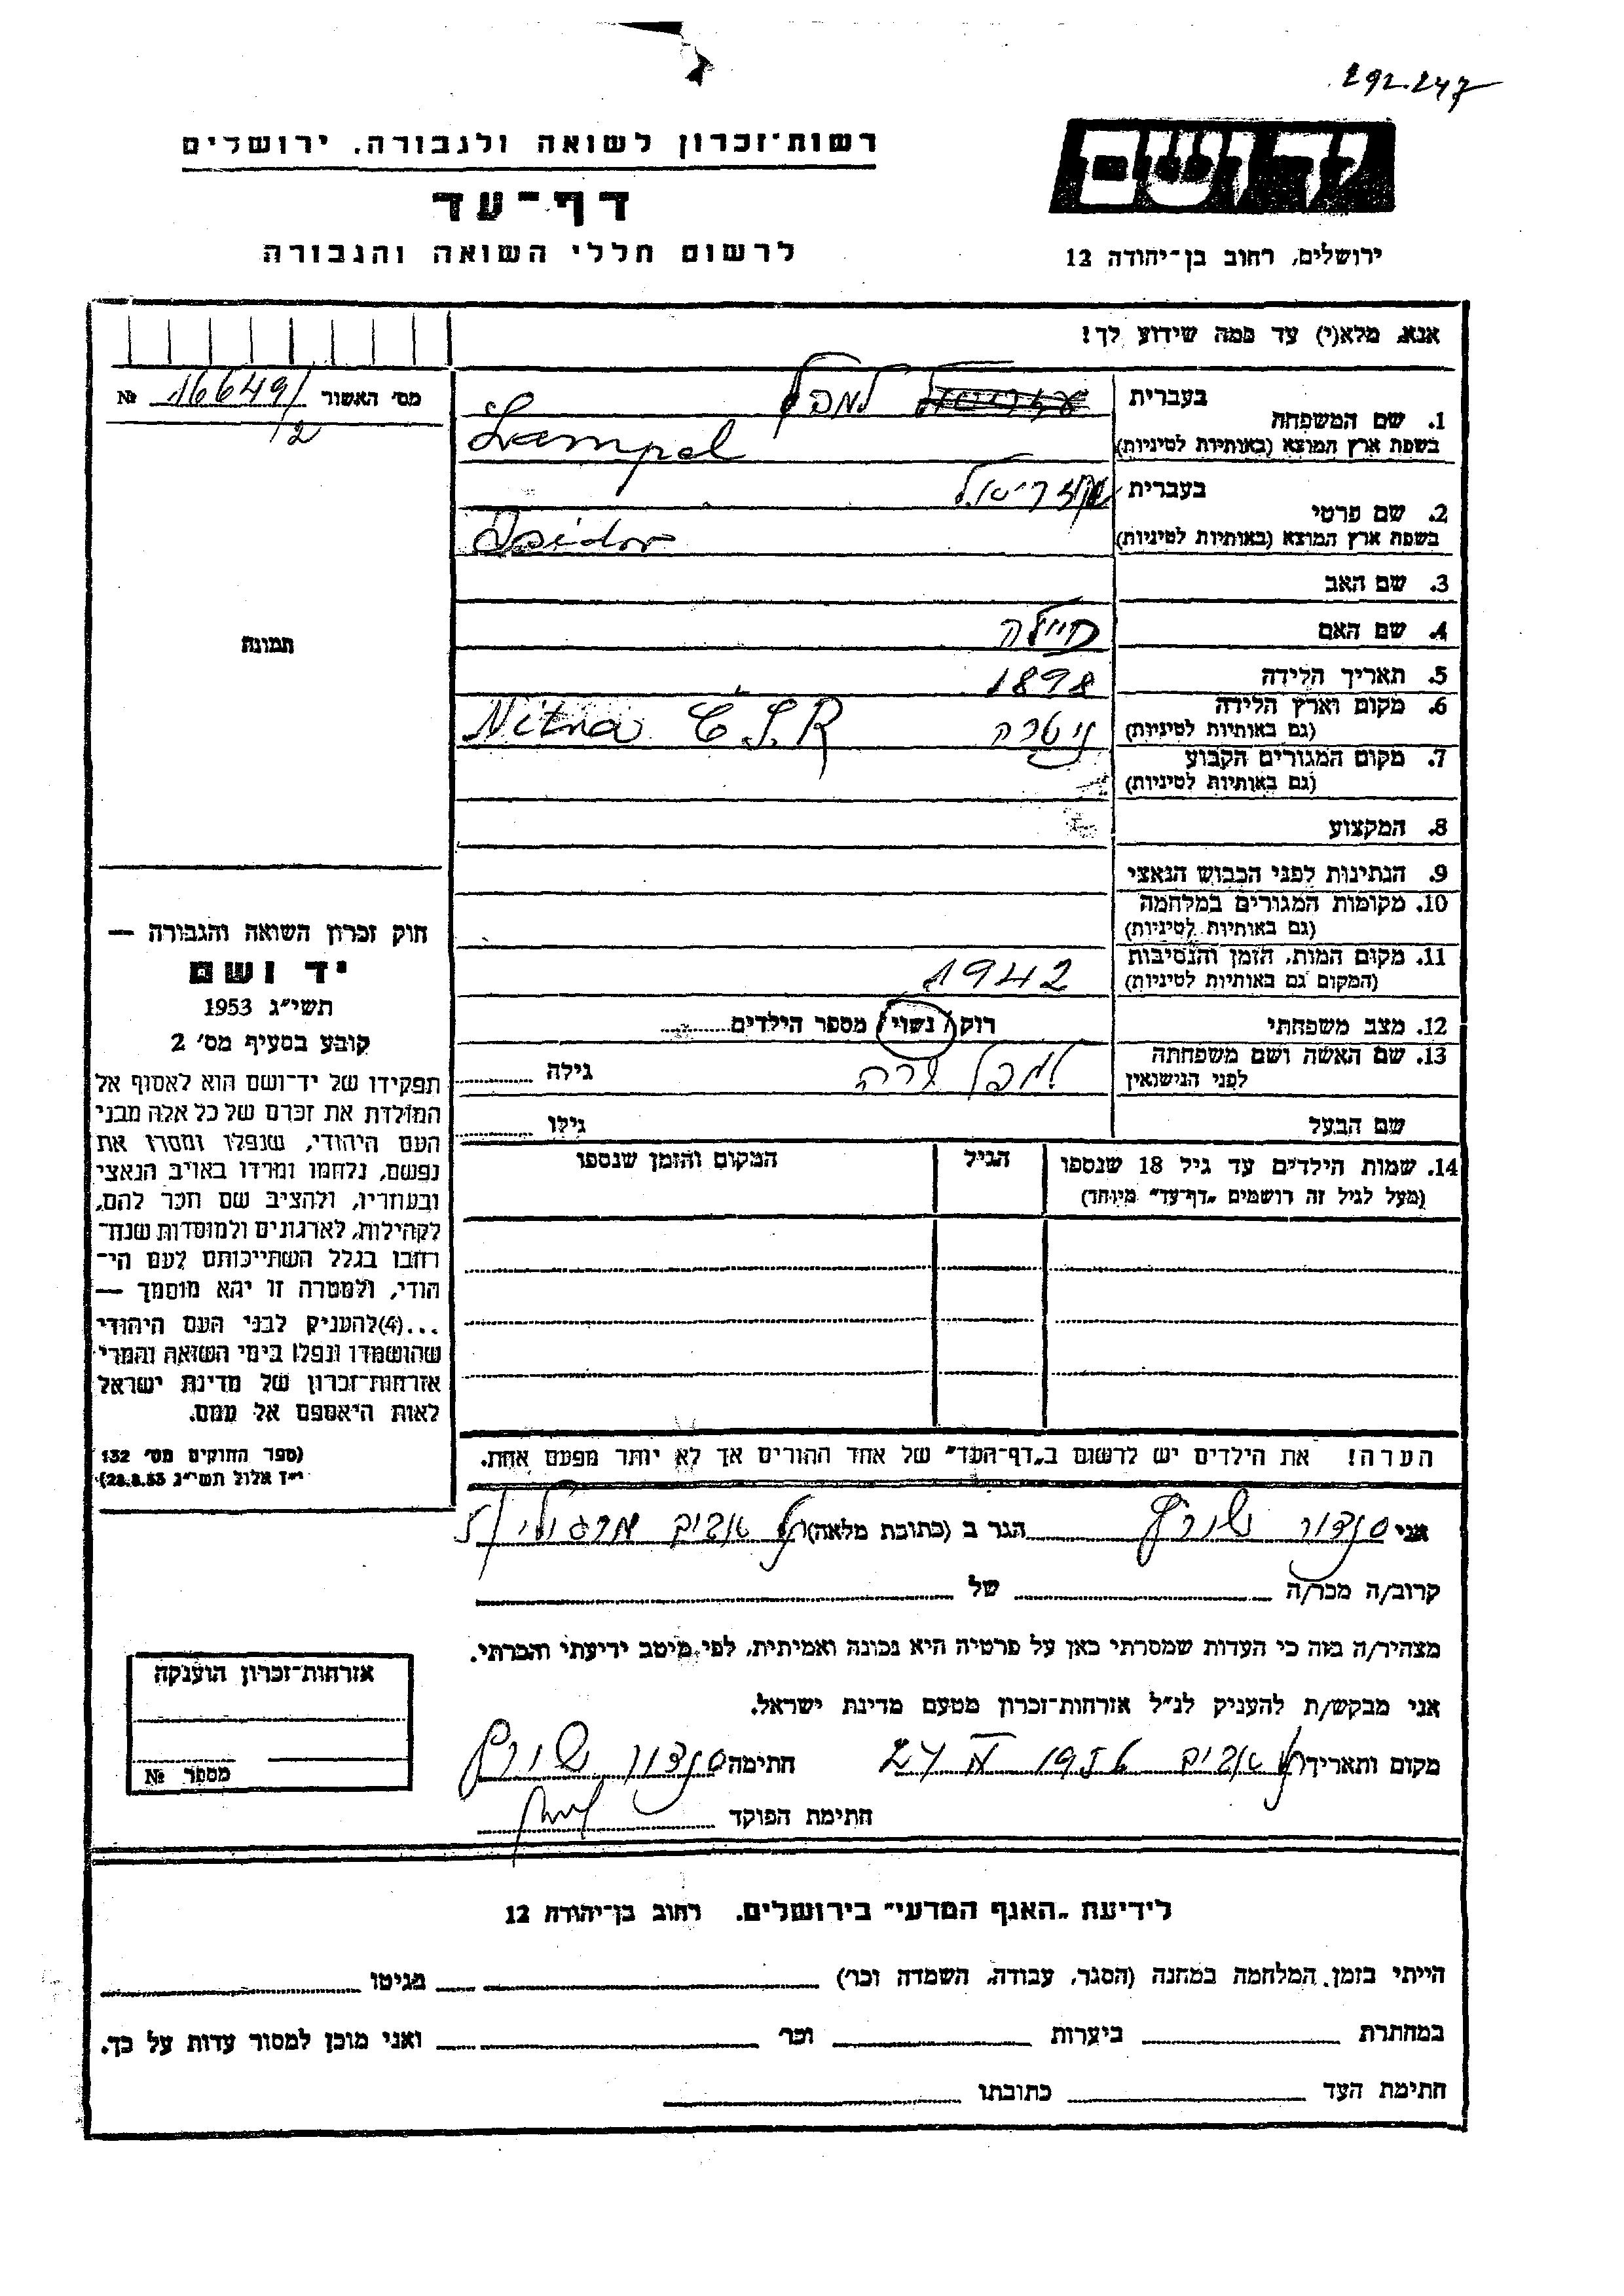 292.247
רשות־זכרון לשואה ולגבורה, ירושלים
דף־עד
לרשום חללי השואה והגבורה
יד ושם
ירושלים, רחוב בן־יהודה 12
אנא, מלא(י) עד כמה שידוע לך!
מס׳ האשור 16649/2 №
תמונה
1. שם המשפחה
בעברית למפל
בשפת ארץ המוצא (באותיות לטיניות) Lampel
2. שם פרטי
בעברית עזריאל
בשפת ארץ המוצא (באותיות לטיניות) Isidor
3. שם האב
4. שם האם חיילה
5. תאריך הלידה 1898
6. מקום וארץ הלידה ניטרה Nitra Č.S.R
(גם באותיות לטיניות)
7. מקום המגורים הקבוע
(גם באותיות לטיניות)
8. המקצוע
9. הנתינות לפני הכבוש הנאצי
10. מקומות המגורים במלחמה
(גם באותיות לטיניות)
11. מקום המות, הזמן והנסיבות 1942
(המקום גם באותיות לטיניות)
12. מצב משפחתי רוק/ נשוי/ מספר הילדים
13. שם האשה ושם משפחתה למפל שרה גילה
לפני הנישואין
שם הבעל גילו
14. שמות הילדים עד גיל 18 שנספו הגיל המקום והזמן שנספו
(מעל לגיל זה רושמים „דף־עד” מיוחד)
הערה! את הילדים יש לרשום ב„דף־העד” של אחד ההורים אך לא יותר מפעם אחת.
חוק זכרון השואה והגבורה —
יד ושם
תשי״ג 1953
קובע בסעיף מס׳ 2
תפקידו של יד־ושם הוא לאסוף אל
המולדת את זכרם של כל אלה מבני
העם היהודי, שנפלו ומסרו את
נפשם, נלחמו ומרדו באויב הנאצי
ובעוזריו, ולהציב שם וזכר להם,
לקהילות, לארגונים ולמוסדות שנח־
רבו בגלל השתייכותם לעם הי־
הודי, ולמטרה זו יהא מוסמך —
...(4)להעניק לבני העם היהודי
שהושמדו ונפלו בימי השואה והמרי
אזרחות־זכרון של מדינת ישראל
לאות היאספם אל עמם.
(ספר החוקים מס׳ 132
י״ז אלול תשי״ג 28.8.53)
אני סנדור שורץ הגר ב (כתובת מלאה) תל אביב
קרוב/ה מכר/ה של
מצהיר/ה בזה כי העדות שמסרתי כאן על פרטיה היא נכונה ואמיתית, לפי מיטב ידיעתי והכרתי.
אני מבקש/ת להעניק לנ״ל אזרחות־זכרון מטעם מדינת ישראל.
מקום ותאריך תל אביב חתימה סנדור שורץ
חתימת הפוקד
אזרחות־זכרון הוענקה
מספר №
לידיעת „האגף המדעי” בירושלים. רחוב בן־יהודה 12
הייתי בזמן המלחמה במחנה (הסגר, עבודה, השמדה וכו׳) בגיטו
במחתרת ביערות וכו׳ ואני מוכן למסור עדות על כך.
חתימת העד כתובתו